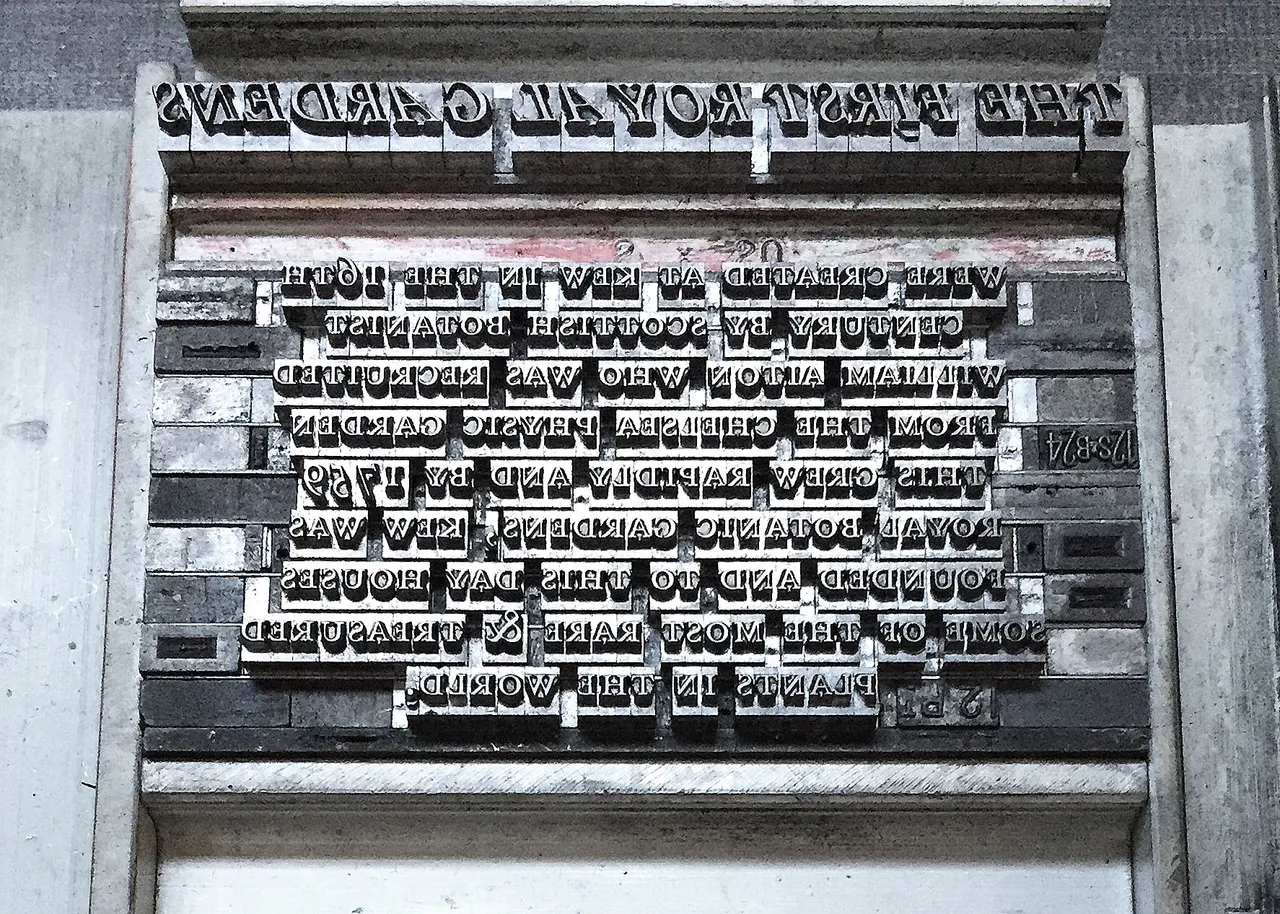 THE FIRST ROYAL GARDENS
2 x 20
WERE CREATED AT KEW IN THE 16TH
CENTURY BY SCOTTISH BOTANIST
WILLIAM AITON WHO WAS RECRUITED
FROM THE CHELSEA PHYSIC GARDEN
THIS GREW RAPIDLY AND BY 1759
ROYAL BOTANIC GARDENS, KEW WAS
FOUNDED AND TO THIS DAY HOUSES
SOME OF THE MOST RARE & TREASURED
PLANTS IN THE WORLD.
12 PT